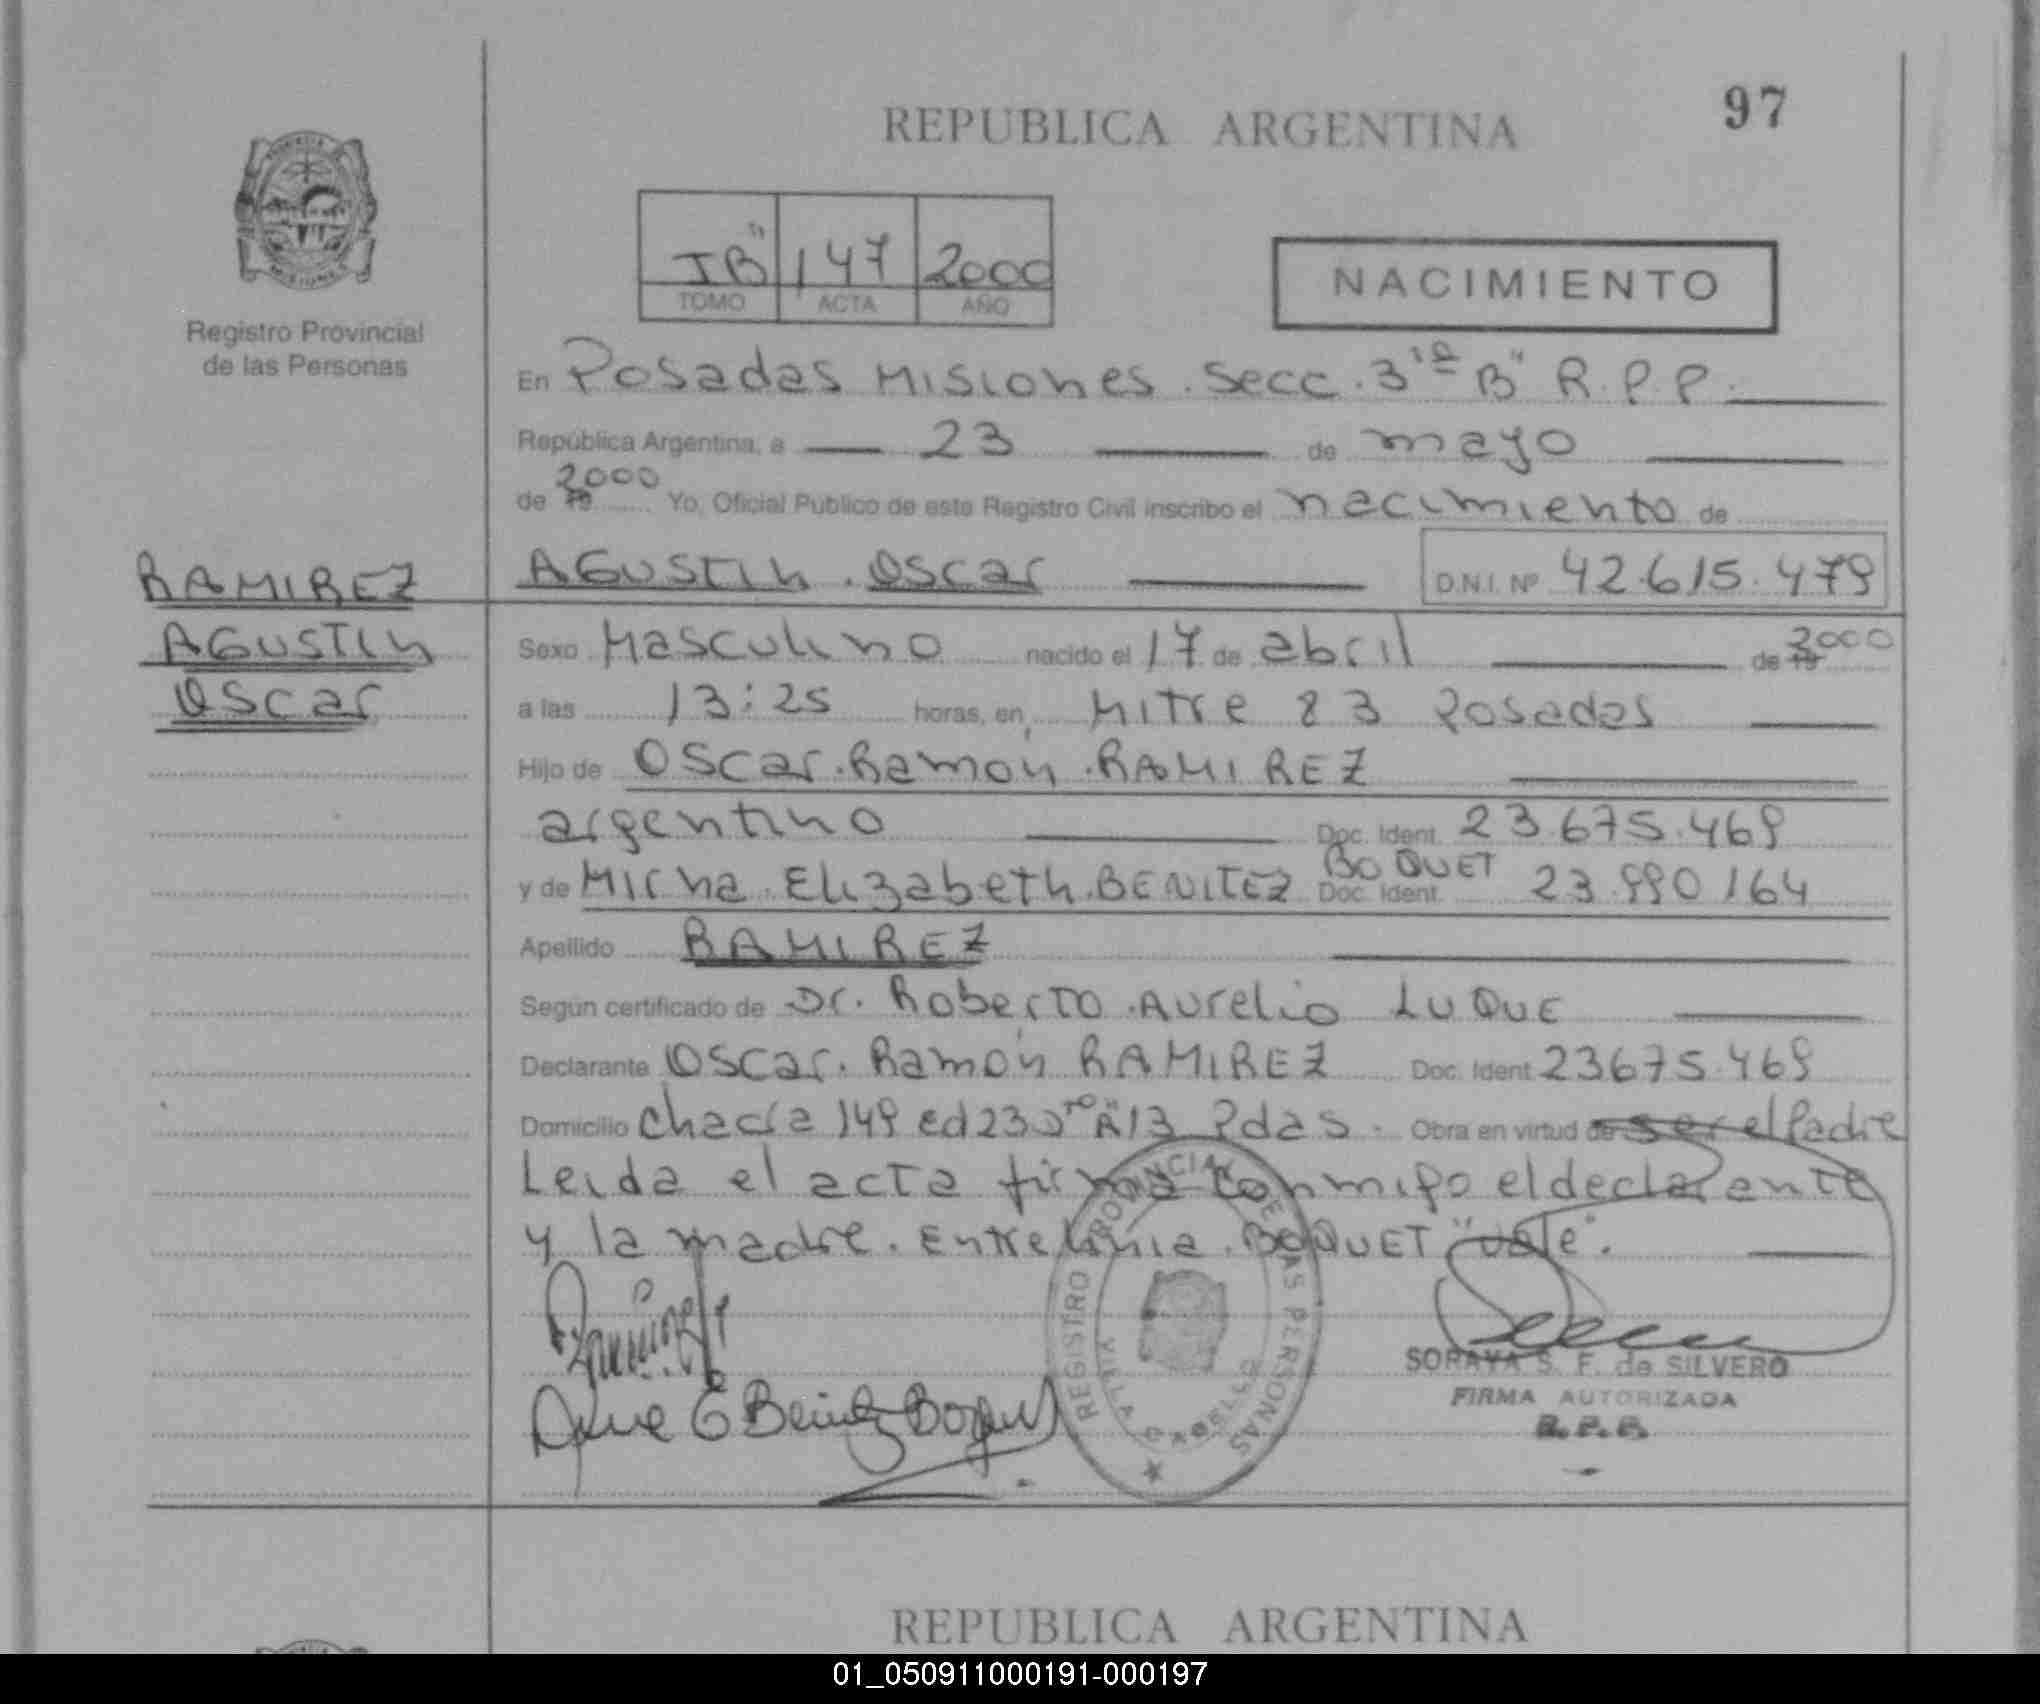 97
REPUBLICA ARGENTINA
IB" 147 2000
TOMO ACTA AÑO
NACIMIENTO
Registro Provincial
de las Personas
En Posadas Misiones. Secc. 3ra "B" R.P.P.
República Argentina, a 23 de mayo
de 19 2000 Yo, Oficial Público de este Registro Civil inscribo el nacimiento de
AGUSTIN. OSCAR D.N.I. Nº 42.615.479
RAMIREZ
AGUSTIN
OSCAR
Sexo Masculino nacido el 17 de abril de 19 2000
a las 13:25 horas, en Mitre 83 Posadas
Hijo de OSCAR. Ramón. RAMIREZ
argentino Doc. Ident. 23.675.469
y de Mirna. Elizabeth. BENITEZ BOQUET Doc. Ident. 23.990164
Apellido RAMIREZ
Según certificado de Dr. Roberto. Aurelio LUQUE
Declarante OSCAR. Ramón RAMIREZ Doc. Ident 23675.469
Domicilio Chacra 149 ed 23 "A" 13 Pdas. Obra en virtud de ser el Padre
Leida el acta firma conmigo el declarante
y la madre. Entrelinia. BOQUET "vale".
REGISTRO PROVINCIAL DE LAS PERSONAS
SORAYA S. F. de SILVERO
FIRMA AUTORIZADA
REPUBLICA ARGENTINA
01_050911000191-000197